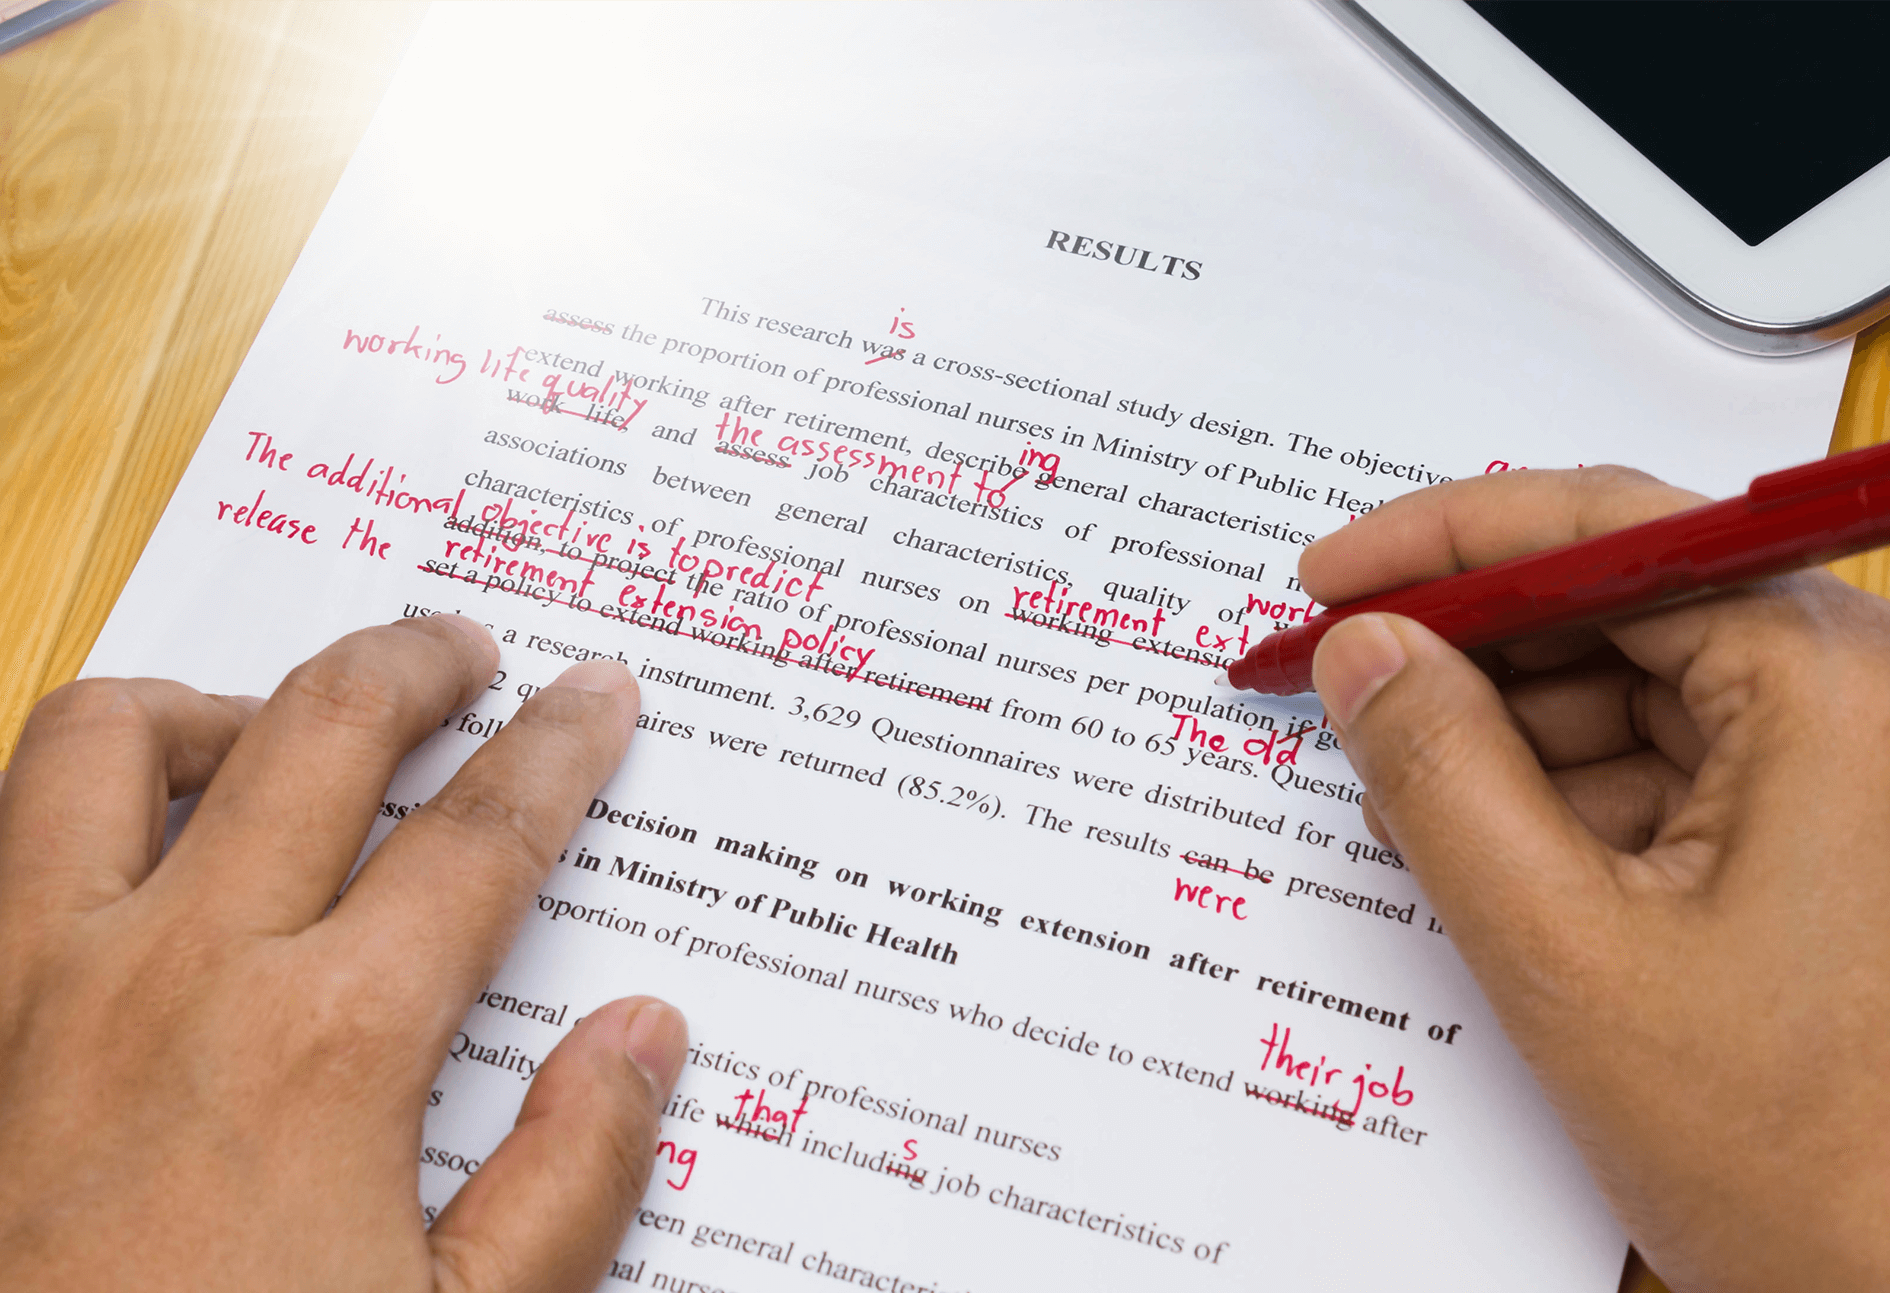 RESULTS
is
This research was a cross-sectional study design. The objective
assess the proportion of professional nurses in Ministry of Public
working life quality
extend working after retirement, describe general characteristics
ing
work life, and assess job characteristics of professional
the assessment to
associations between general characteristics, quality of
work
characteristics of professional nurses on working
retirement
The additional objective is to predict
addition, to project the ratio of professional nurses per population if
release the retirement extension policy
set a policy to extend working after retirement from 60 to 65 years.
The old
a research instrument. 3,629 Questionnaires were distributed for
were returned (85.2%). The results can be presented
were
Decision making on working extension after retirement of
in Ministry of Public Health
of professional nurses who decide to extend working after
their job
of professional nurses
Quality life which including job characteristics of
that
s
ng
general